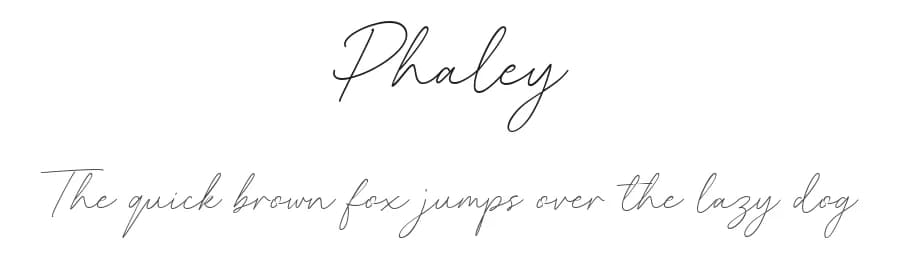 Phaley
The quick brown fox jumps over the lazy dog